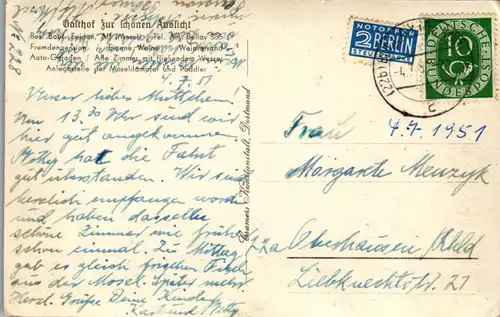 Gasthof zur schönen Aussicht
Fremdenpension / Eigene Weine / Weinversand
Auto-Garagen / Alle Zimmer mit fließendem Wasser
Anlegestelle der Moseldampfer und Paddler
4.7.51
Unser liebes Muttchen!
Um 13.30 Uhr sind wir
hier gut angekommen
hat die Fahrt
gut überstanden. Wir sind
herzlich empfangen worden
und haben dasselbe
schöne Zimmer wie früher
schon einmal. Zu Mittag
gab es gleich frischen Fisch
aus der Mosel. Später mehr.
Herzl. Grüße Deine Kinder
Karl und
Cramers Kunstanstalt, Dortmund
NOTOPFER
2 BERLIN
STEUERMARKE
DEUTSCHE POST
10
BUNDESPOST
4.7.1951
Frau
Margarete Menzyk
22a Oberhausen/Rhld
Liebknechtstr. 27